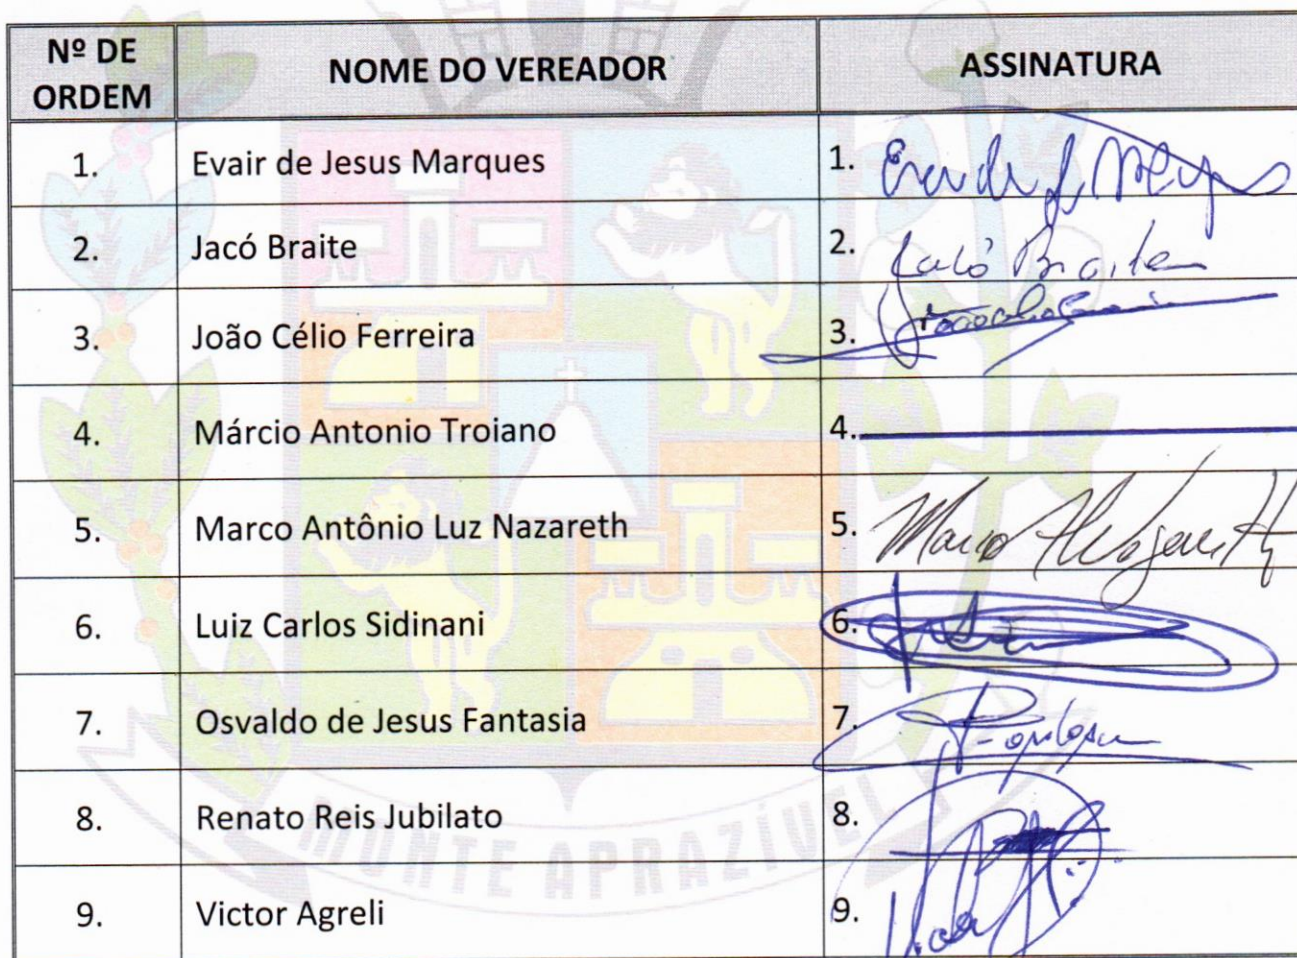 Nº DE ORDEM NOME DO VEREADOR ASSINATURA
1. Evair de Jesus Marques 1.
2. Jacó Braite 2. Jacó Braite
3. João Célio Ferreira 3.
4. Márcio Antonio Troiano 4.
5. Marco Antônio Luz Nazareth 5. Marco
6. Luiz Carlos Sidinani 6.
7. Osvaldo de Jesus Fantasia 7.
8. Renato Reis Jubilato 8.
9. Victor Agreli 9.
MONTE APRAZÍVEL